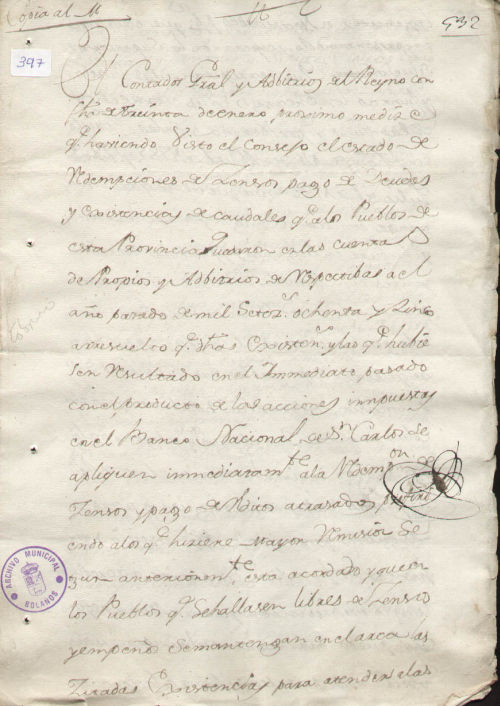 Copia al M
532
397
El Contador Gral y Arbitrios del Reyno con
fha de treinta de enero proximo me dize
q.e haviendo visto el Consejo el estado de
Redempciones de Zensos pago de Deudas
y existencias de caudales q.e a los Pueblos de
esta Provincia en las cuentas
de Propios y Arbitrios respectibas a el
año pasado de mil Setez.s ochenta y Zinco
a resuelto q.e dhas Existen.s y las q.e hubie
sen resultado en el Immediato pasado
con el producto de las acciones impuestas
en el Banco Nacional de S.n Carlos se
apliquen immediatam.te a la Redemp.on de
Zensos y pago de Reditos atrasados prefiri
endo a los q.e hiziene mayor Remision Se
gun anteriorm.te esta acordado y que en
los Pueblos q.e Se hallasen libres de Zensso
y empeño Se mantengan en el arca las
Zitadas Existencias para atender a las
ARCHIVO MUNICIPAL
BOLAÑOS